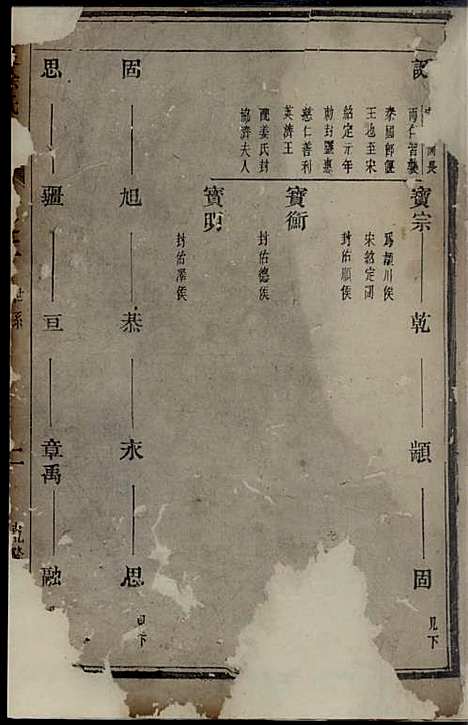 寶宗 乾 顓 固 見下
雨仁習
泰國郎
王也至宋
紹定元年
勅封靈惠
慈仁善利
英濟王
配姜氏封
協濟夫人
為潁川侯
宋紹定間
封佑順侯
寶衡
封佑德侯
寶明
封佑澤侯
固 旭 恭 永 思 下
思 疆 亘 章禹 融
世系
二